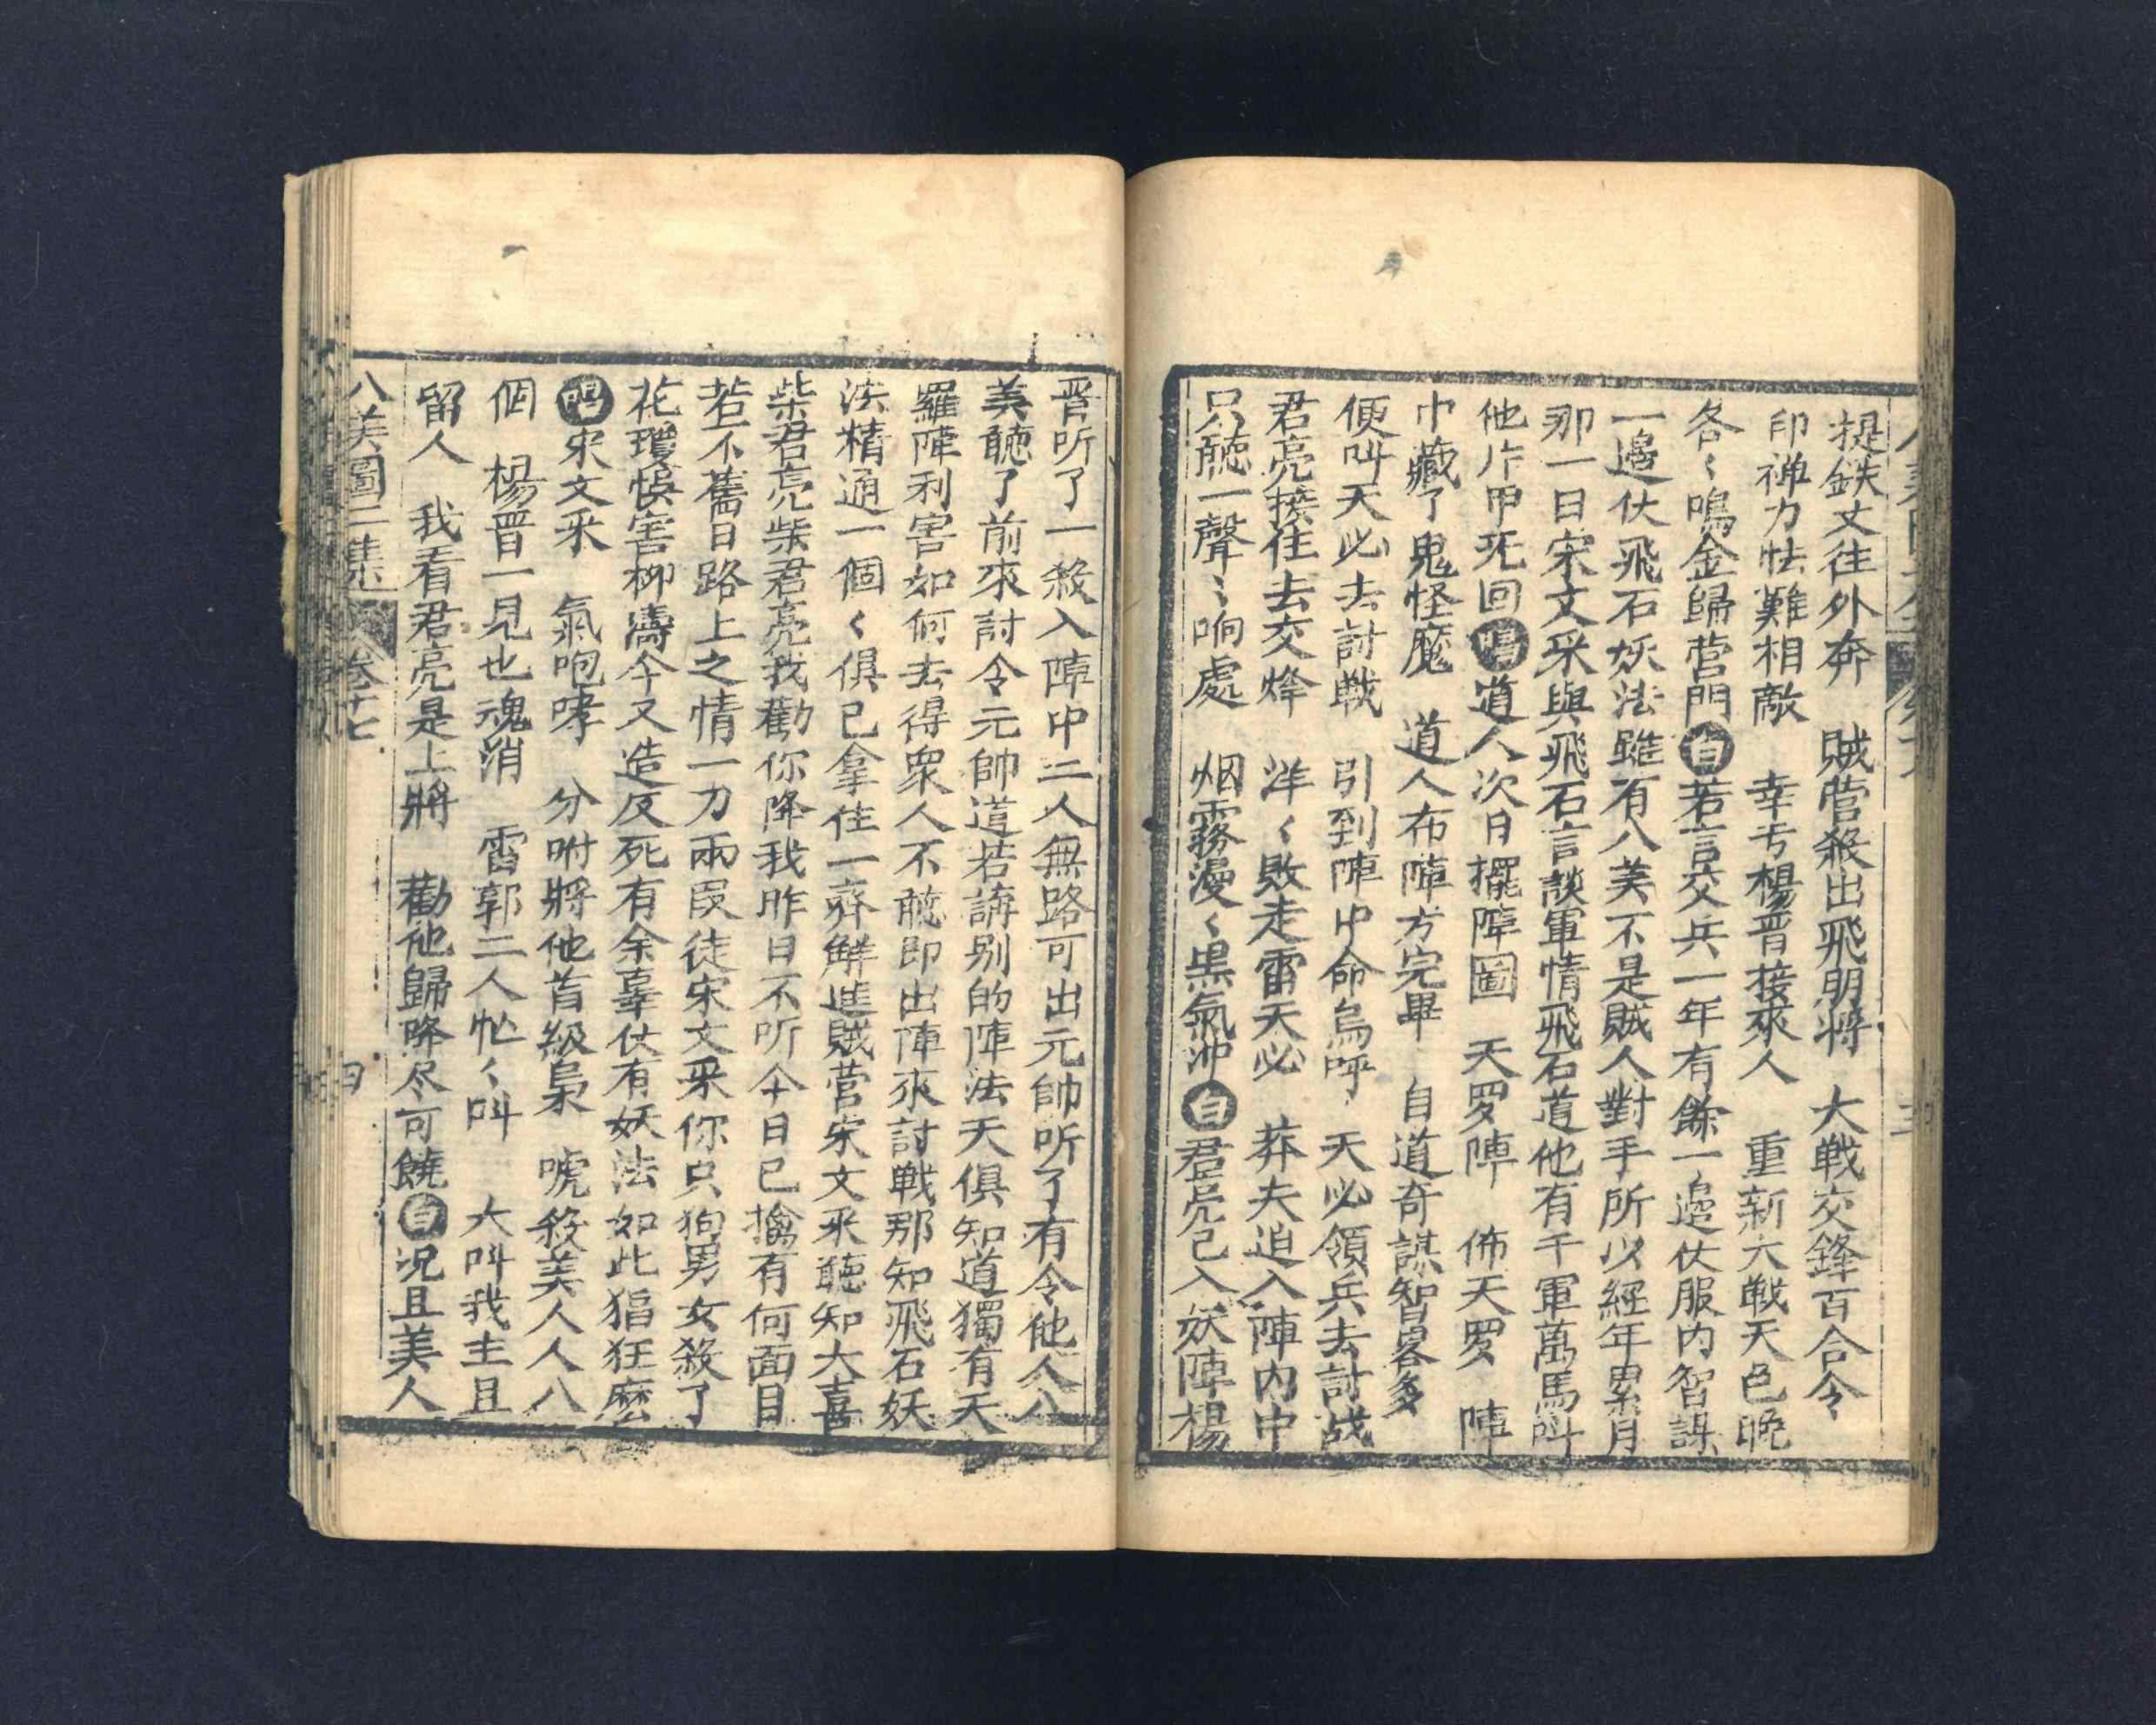 提鉄丈往外奔　賊營殺出飛朋將　大戰交鋒百合令
印禅力怯難相敵　幸亏楊晋接來人　重新大戰天色晚
各〻鳴金歸营門白若言交兵一年有餘一邉仗服内智謀
一邉仗飛石妖法雖有八美不是賊人對手所以經年累月
那一日宋文采與飛石言談軍情飛石道他有千軍萬馬叫
他片甲死回唱道人次日擺陣圖　天罗陣　佈天罗　陣
巾藏了鬼怪魔　道人布陣方完畢　自道奇謀智畧多
便叫天必去討戰　引到陣中命烏呼　天必領兵去討战
君亮接住去交烽　洋〻敗走雷天必　莽夫追入陣内中
只聽一聲〻响處　烟霧漫〻黒氣冲白君亮已入妖陣楊
晋听了一殺入陣中二人無路可出元帥听了有令他人八
美聽了前來討令元帥道若講别的陣法天俱知道獨有天
羅陣利害如何去得衆人不聽即出陣來討戰那知飛石妖
法精通一個〻俱已拿住一齊解進賊营宋文采聽知大喜
柴君亮柴君亮我勸你降我昨日不听今日已擒有何面目
若不舊日路上之情一刀兩段徒宋文采你只狗男女殺了
花瓊悞害柳濤今又造反死有余辜仗有妖法如此猖狂麼
唱宋文采　氣咆哮　分咐將他首級梟　唬殺美人人八
個　楊晋一見也魂消　雷郭二人忙〻叫　大叫我主且
留人　我看君亮是上將　勸他歸降尽可饒白况且美人
八美圖二集　卷十七　四